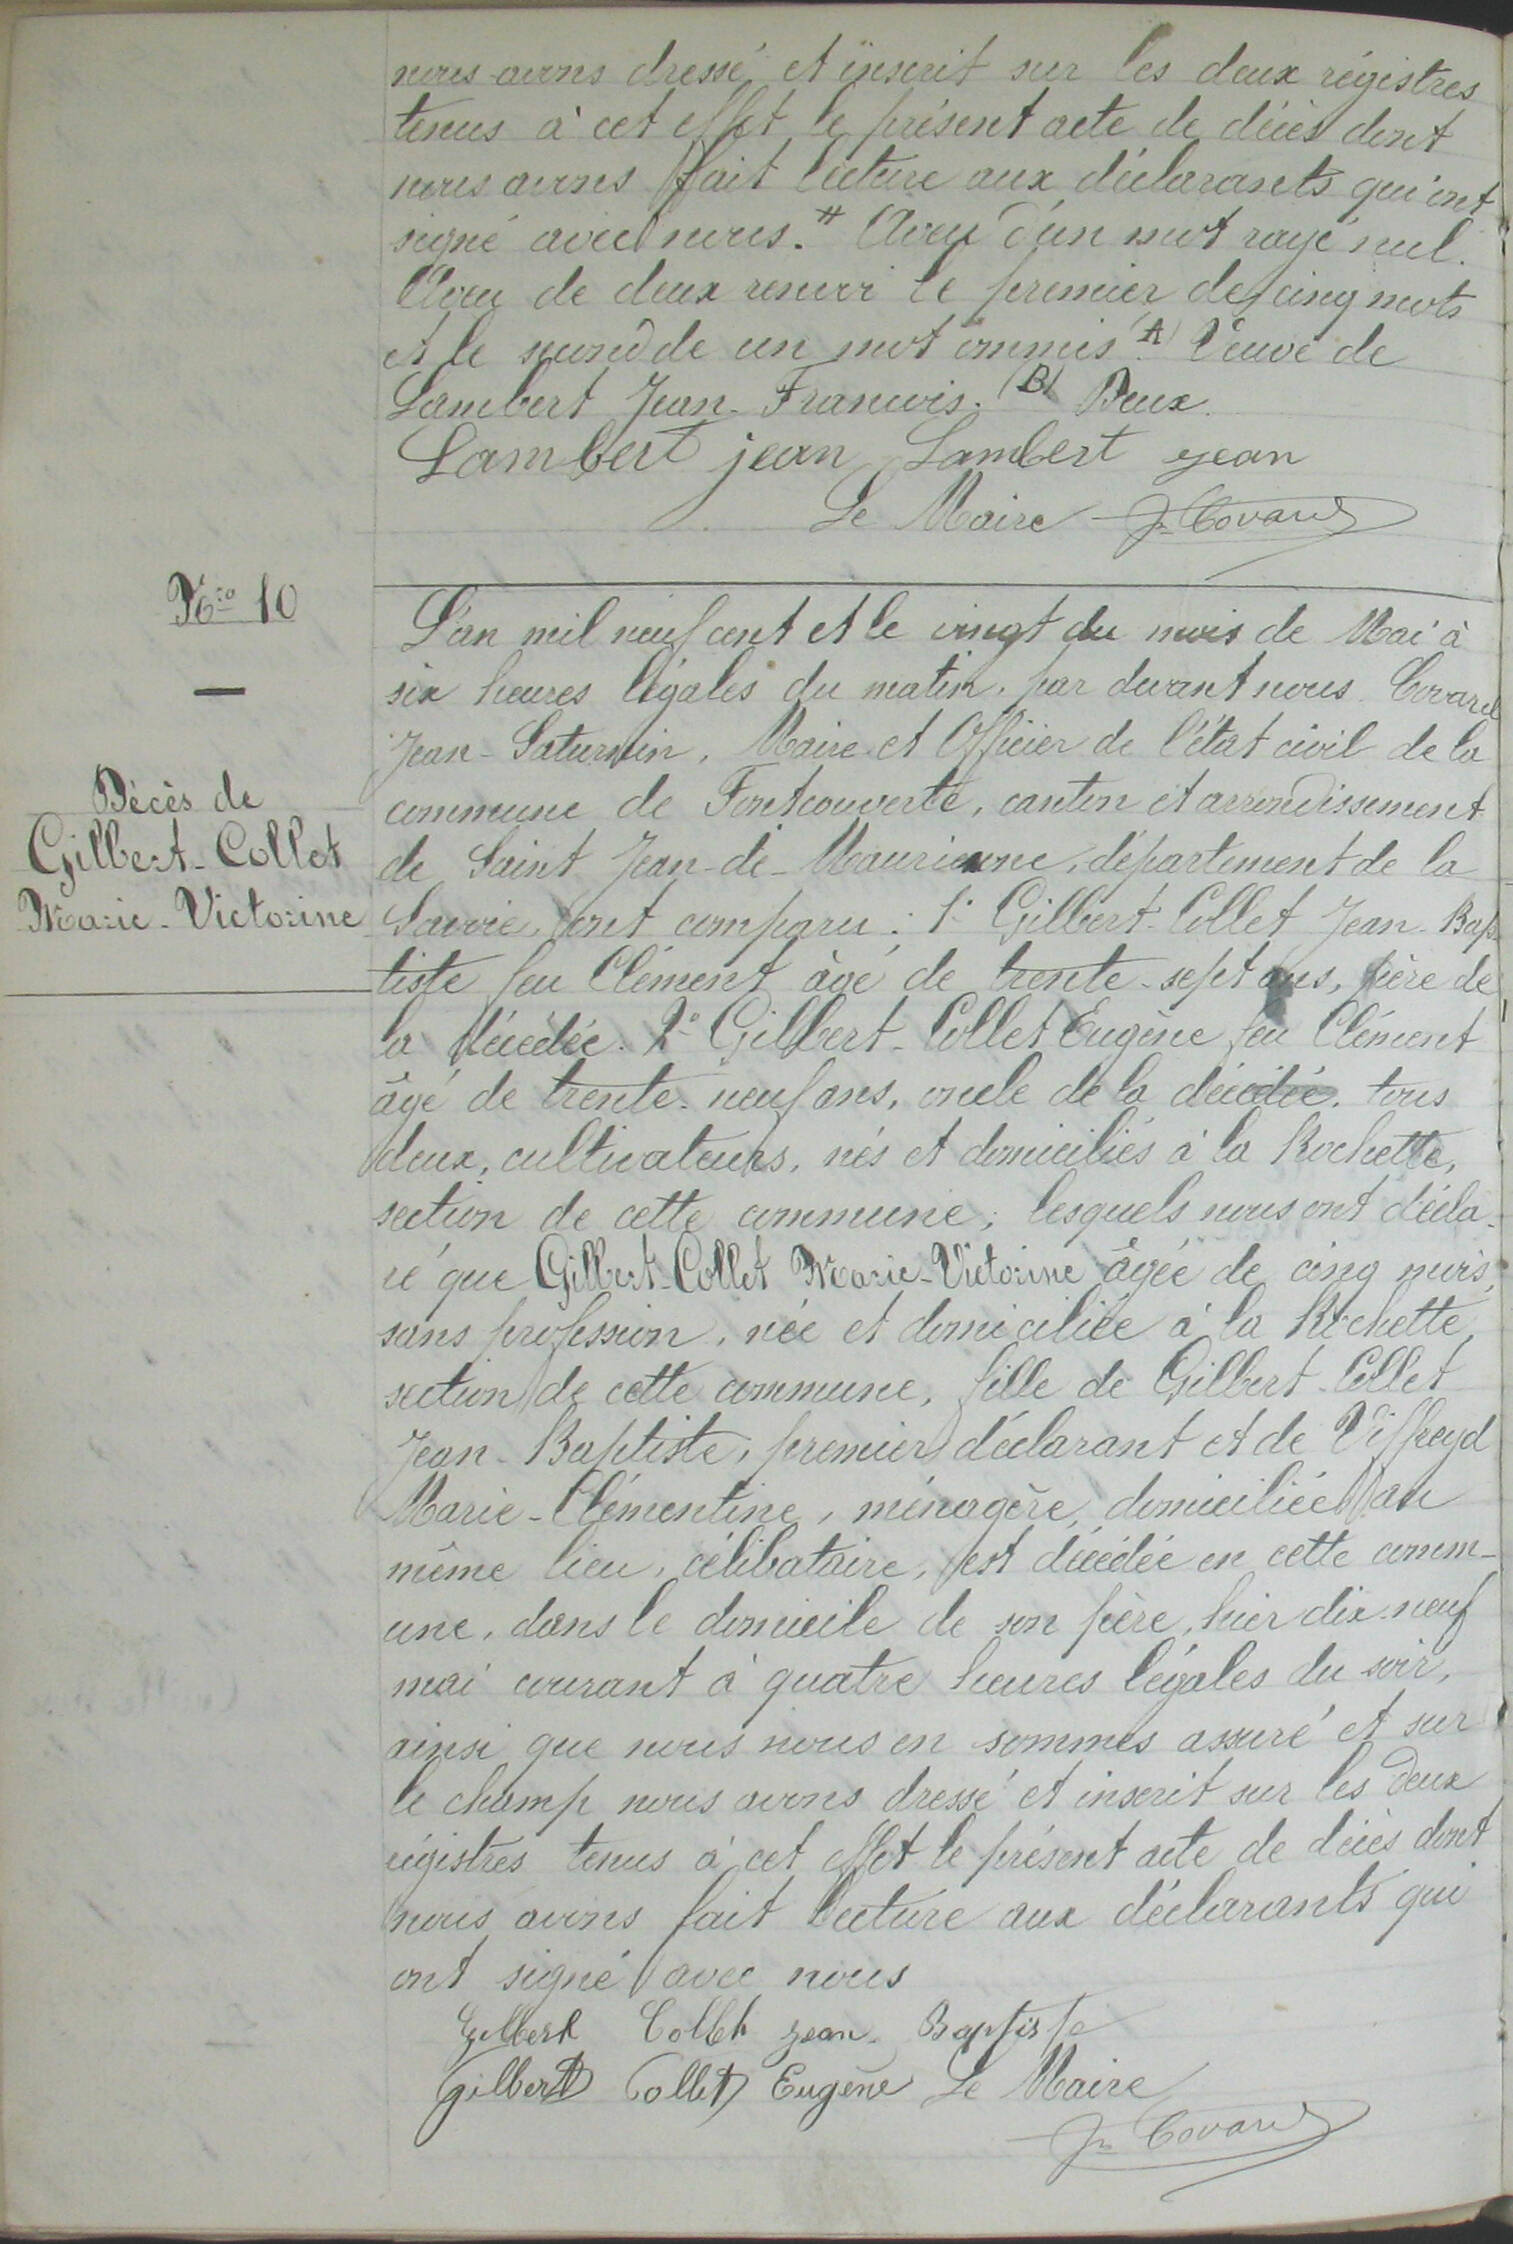 nous avons dressé et inscrit sur les deux régistres
tenus à cet effet le présent acte de décès dont
nous avons fait lecture aux déclarants qui ont
signé avec nous.# Aveu d'un mot rayé nul.
Aveu de deux renvoi le premier de cinq mots
et le second de un mot ommis (A) Veuve de
Lambert Jean-Francois. (B) Deux.
Lambert jean Lambert jean
Le Maire Jn Covarel
Nro 10
Décès de
Gilbert-Collet
Marie-Victorine
L'an mil neuf cent et le vingt du mois de Mai à
six heures légales du matin, par devant nous Covarel
Jean-Saturnin, Maire et Officier de l'état civil de la
commune de Fontcouverte, canton et arrondissement
de Saint Jean-de-Maurienne, département de la
Savoie, ont comparu : 1° Gilbert-Collet Jean-Bap-
tiste feu Clément âgé de trente-sept ans, père de
la décédée. 2° Gilbert-Collet Eugène feu Clément
âgé de trente-neuf ans, oncle de la décédée, tous
deux, cultivateurs, nés et domiciliés à la Rochette,
section de cette commune; lesquels nous ont décla-
ré que Gilbert-Collet Marie-Victorine âgée de cinq mois,
sans profession, née et domiciliée à la Rochette,
section de cette commune, fille de Gilbert-Collet
Jean-Baptiste, premier déclarant et de Viffreyd
Marie-Clémentine, ménagère, domiciliée au
même lieu, célibataire, est décédée en cette comm-
une, dans le domicile de son père, hier dix-neuf
mai courant à quatre heures légales du soir,
ainsi que nous nous en sommes assuré et sur
le champ nous avons dressé et inscrit sur les deux
régistres tenus à cet effet le présent acte de décès dont
nous avons fait lecture aux déclarants qui
ont signé avec nous
Gilbert Collet jean-Baptiste
Gilbert Collet Eugène Le Maire
Jn Covarel